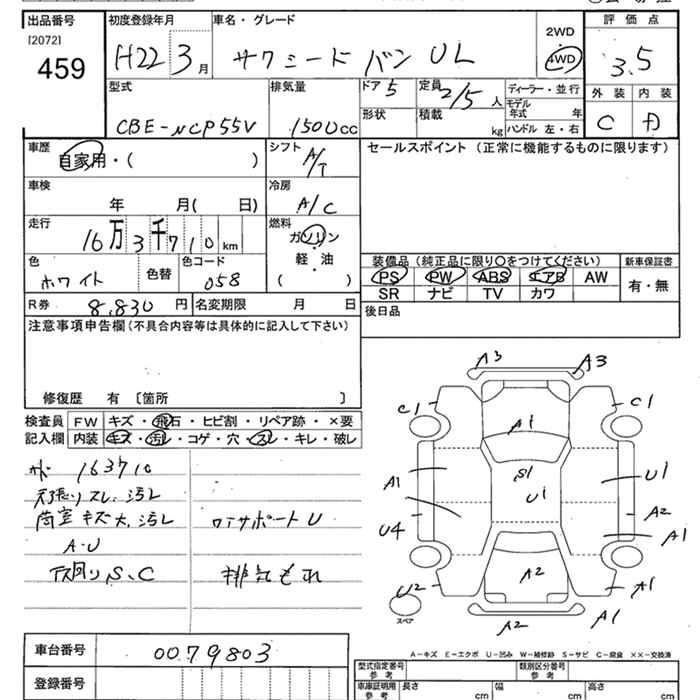 出品番号
[2072]
459
初度登録年月
H22 3月
車名・グレード
サクシード バン UL
2WD
4WD
評価点
3.5
外装 内装
C D
型式
CBE-NCP55V
排気量
1500cc
ドア 5
形状
定員 2/5人
積載 kg
ディーラー・並行
モデル年式 年
ハンドル 左・右
車歴
自家用・( )
シフト
A/T
セールスポイント (正常に機能するものに限ります)
車検
年 月( 日)
冷房
A/C
走行
16万3千710km
燃料
ガソリン
軽・油
( )
色
ホワイト
色替
色コード
058
装備品 (純正品に限り○をつけてください)
新車保証書
PS PW ABS エアB AW
有・無
SR ナビ TV カワ
R券 8,830円
名変期限 月 日
後日品
注意事項申告欄 (不具合内容等は具体的に記入して下さい)
修復歴 有 [箇所 ]
検査員記入欄
FW キズ・飛石・ヒビ割・リペア跡・×要
内装 キズ・汚レ・コゲ・穴・スレ・キレ・破レ
163710
天張りスレ、汚レ
荷室キズ大、汚レ
コアサポートU
A-U
下回りS、C
排気もれ
A3 A3
C1 C1
A1
A1 S1 U1 U1
U4 A2
A1
U2 A2 A1
スペア
A2 A1
A-キズ E-エクボ U-凹み W-補修跡 S-サビ C-腐食 ××-交換済
車台番号
0079803
登録番号
型式指定番号 参考
類別区分番号 参考
車庫証明用 参考
長さ cm 幅 cm 高さ cm